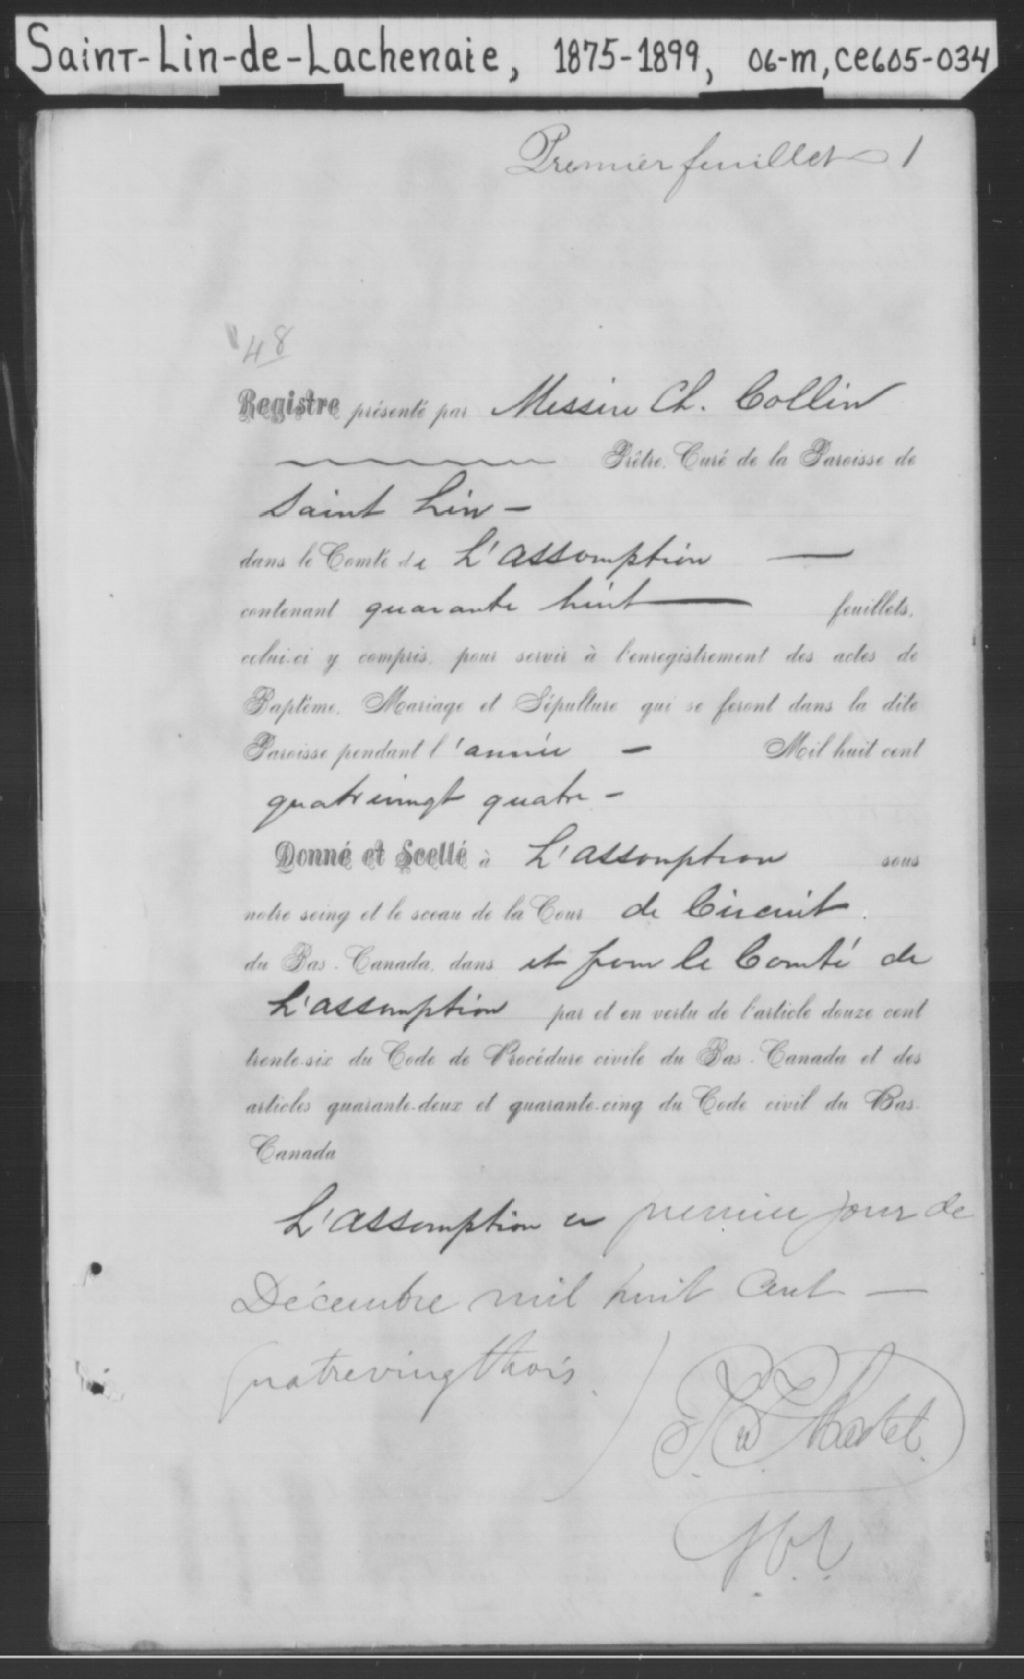 Saint-Lin-de-Lachenaie, 1875-1899, 06-m, CE605-034
Premier feuillet 1
48
Registre présenté par Messire Ch. Collin
Prêtre, Curé de la Paroisse de
Saint Lin —
dans le Comté de L'assomption —
contenant quarante huit — feuillets,
celui-ci y compris, pour servir à l'enregistrement des actes de
Baptême, Mariage et Sépulture qui se feront dans la dite
Paroisse pendant l'année — Mil huit cent
quatrevingt quatre —
Donné et Scellé à L'assomption sous
notre seing et le sceau de la Cour de Circuit
du Bas-Canada, dans et pour le Comté de
L'assomption par et en vertu de l'article douze cent
trente-six du Code de Procédure civile du Bas-Canada et des
articles quarante-deux et quarante-cinq du Code civil du Bas-
Canada
L'assomption ce premier jour de
Décembre mil huit cent —
quatrevingt trois.